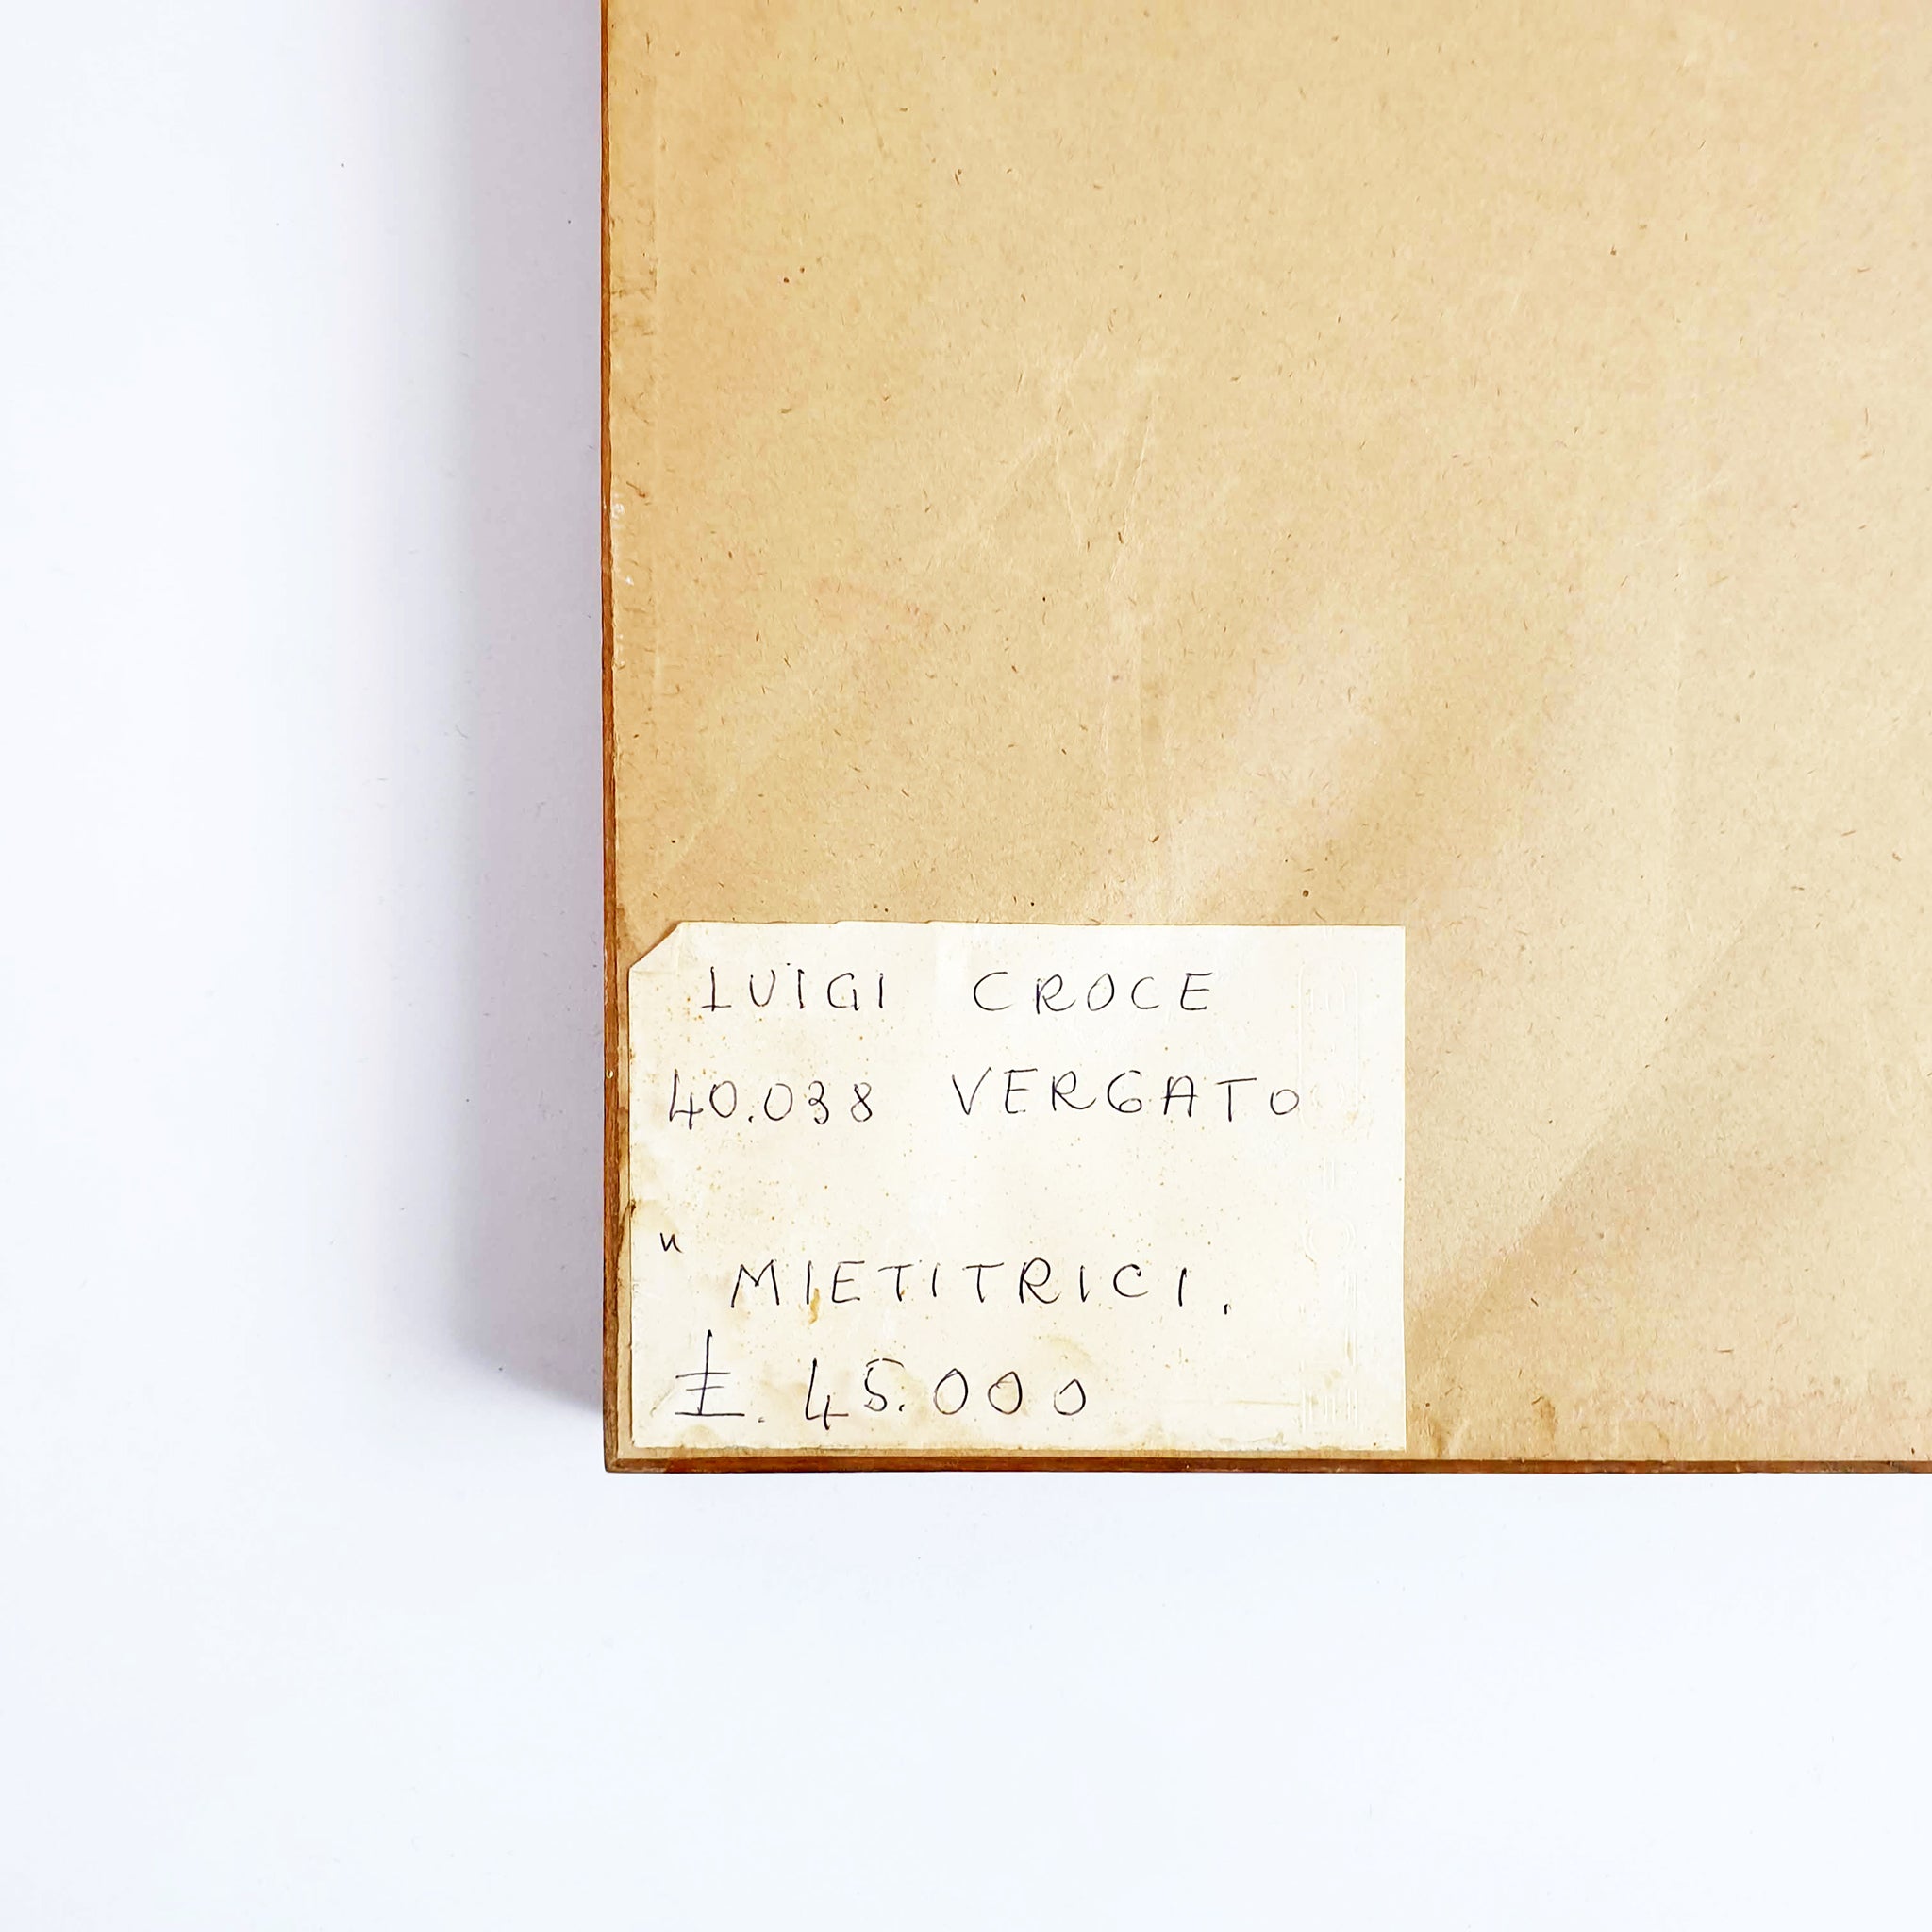 LUIGI CROCE
40.038 VERGATO
" MIETITRICI.
£. 45.000